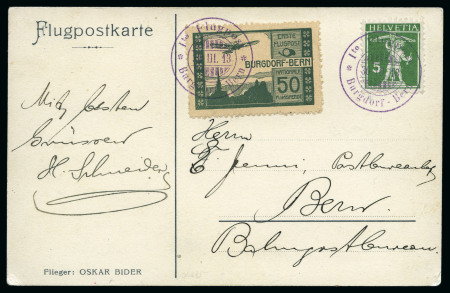 Flugpostkarte
1te Flugpost
III. 13
Burgdorf-Bern
ERSTE
FLUGPOST
BURGDORF-BERN
NATIONALE
50
FLUGSPENDE
HELVETIA
5
1te
Burgdorf-Bern
Mit besten
Grüssen
H. Schneider
Herrn
E. Jenni, Postbureauchef
Bern
Bahnpostbureau.
Flieger: OSKAR BIDER